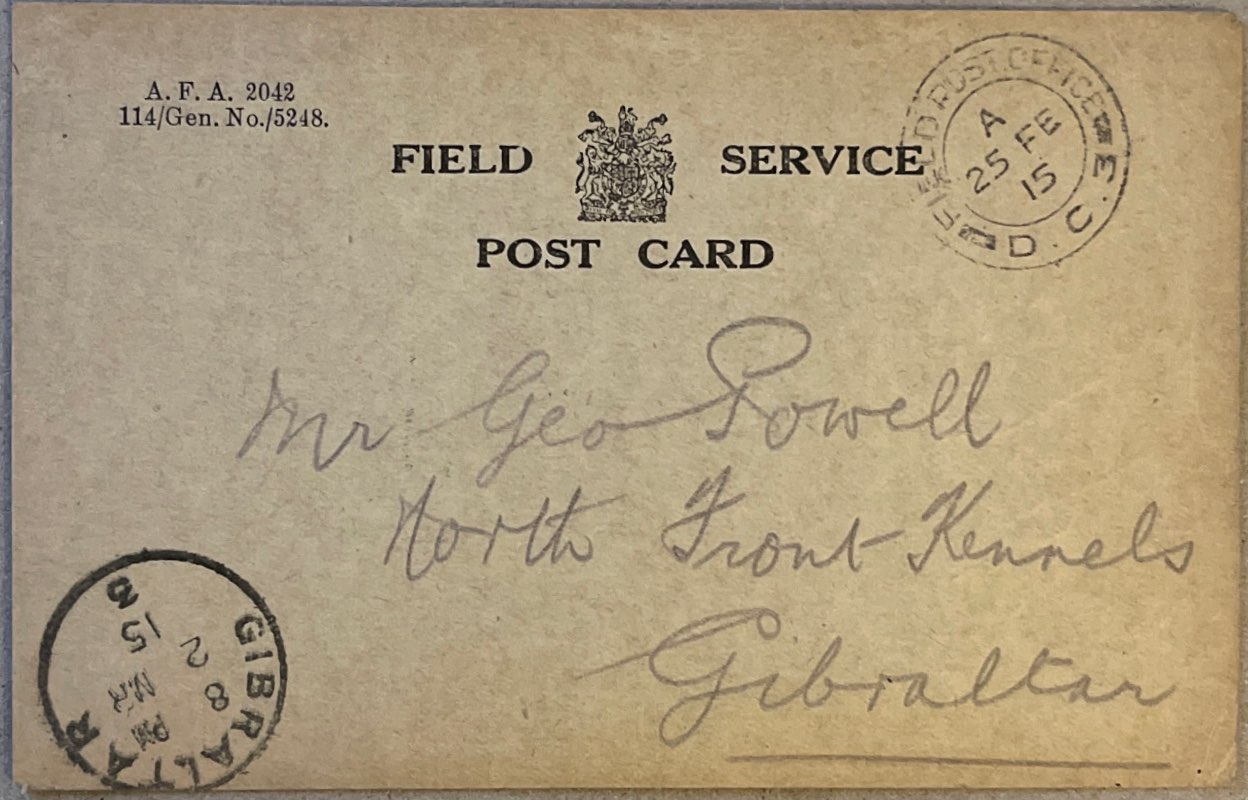 A. F. A. 2042
114/Gen. No./5248.
FIELD SERVICE
POST CARD
FIELD POST OFFICE
A
25 FE
15
D.C.E.
Mr Geo Powell
North Front Kennels
Gibraltar
GIBRALTAR
8 PM
2 MR
15